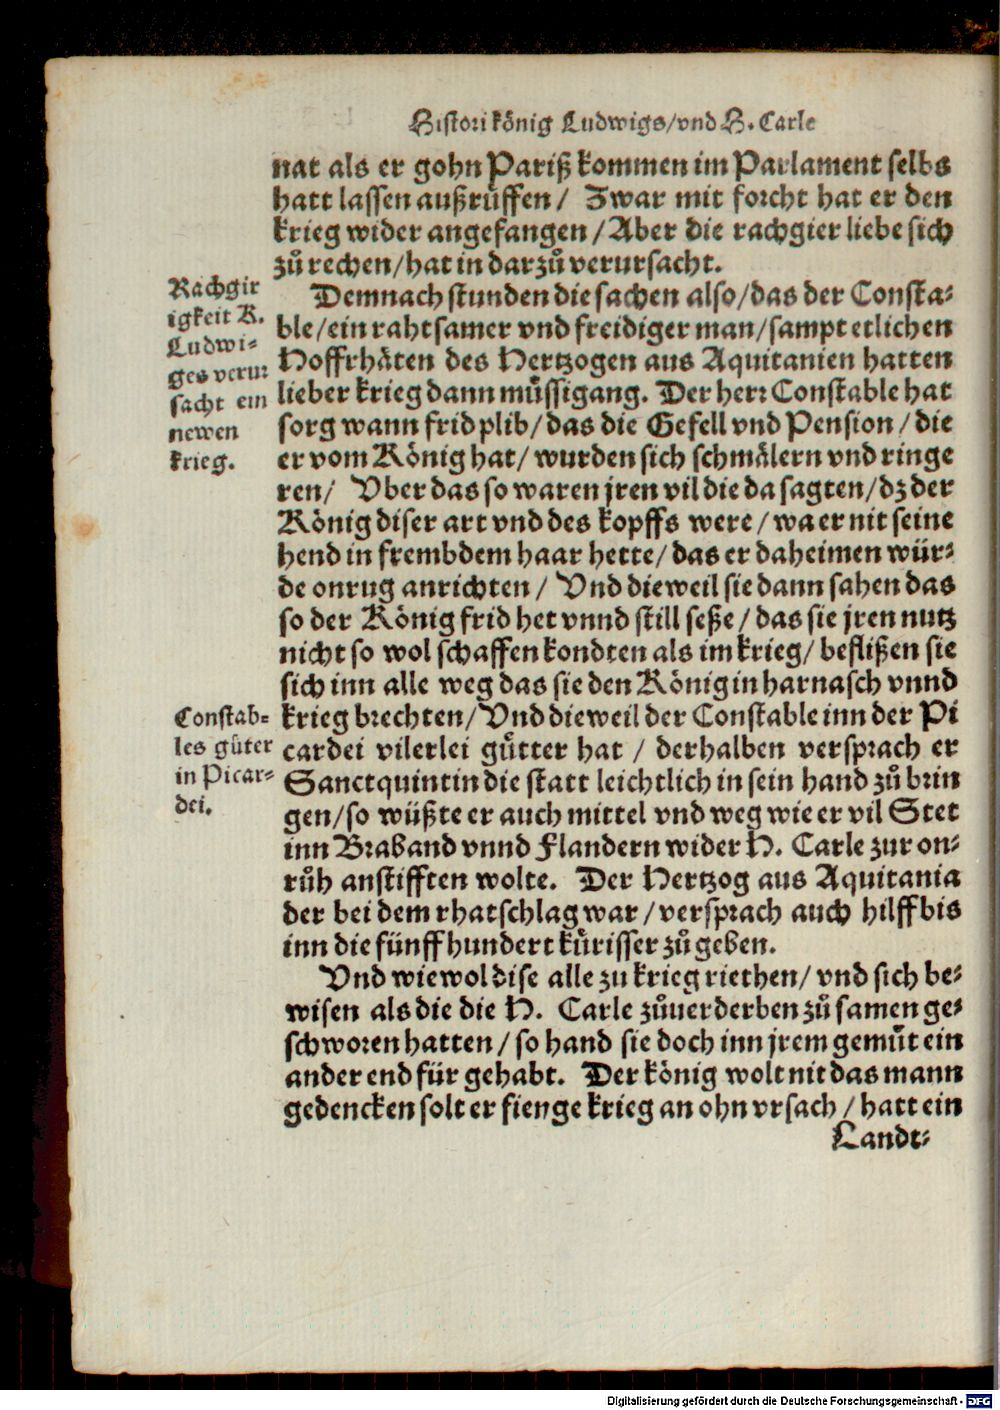 Histori König Ludwigs/vnd H. Carle
nat als er gohn Pariß kommen im Parlament selbs
hatt lassen außrůffen/ Zwar mit forcht hat er den
krieg wider angefangen/Aber die rachgier liebe sich
zů rechen/hat in darzů verursacht.
Demnach stunden die sachen also/das der Consta-
ble/ein rahtsamer vnd freidiger man/sampt etlichen
Hoffrhäten des Hertzogen aus Aquitanien hatten
lieber krieg dann müssigang. Der herr Constable hat
sorg wann frid plib/das die Gefell vnd Pension/die
er vom König hat/ wurden sich schmälern vnd ringe
ren/ Vber das so waren jren vil die da sagten/dz der
König diser art vnd des kopffs were/wa er nit seine
hend in frembdem haar hette/das er daheimen wür-
de onrug anrichten/ Vnd dieweil sie dann sahen das
so der König frid het vnnd still seße/das sie jren nutz
nicht so wol schaffen kondten als im krieg/ beflißen sie
sich inn alle weg das sie den König in harnasch vnnd
krieg brechten/Vnd dieweil der Constable inn der Pi
cardei vilerlei gůtter hat / derhalben versprach er
Sanctquintin die statt leichtlich in sein hand zů brin
gen/so wüßte er auch mittel vnd weg wie er vil Stet
inn Braband vnnd Flandern wider H. Carle zur on-
růh anstifften wolte. Der Hertzog aus Aquitania
der bei dem rhatschlag war/versprach auch hilff bis
inn die fünff hundert kürisser zů geben.
Vnd wiewol dise alle zu krieg riethen/ vnd sich be-
wisen als die die H. Carle zůuerderben zů samen ge-
schworen hatten/so hand sie doch inn jrem gemůt ein
ander end für gehabt. Der könig wolt nit das mann
gedencken solt er fienge krieg an ohn vrsach/hatt ein
Landt-
Rachgir
igkeit K.
Ludwi-
ges verur
sacht ein
newen
krieg.
Constab-
les güter
in Picar-
dei.
Digitalisierung gefördert durch die Deutsche Forschungsgemeinschaft - DFG